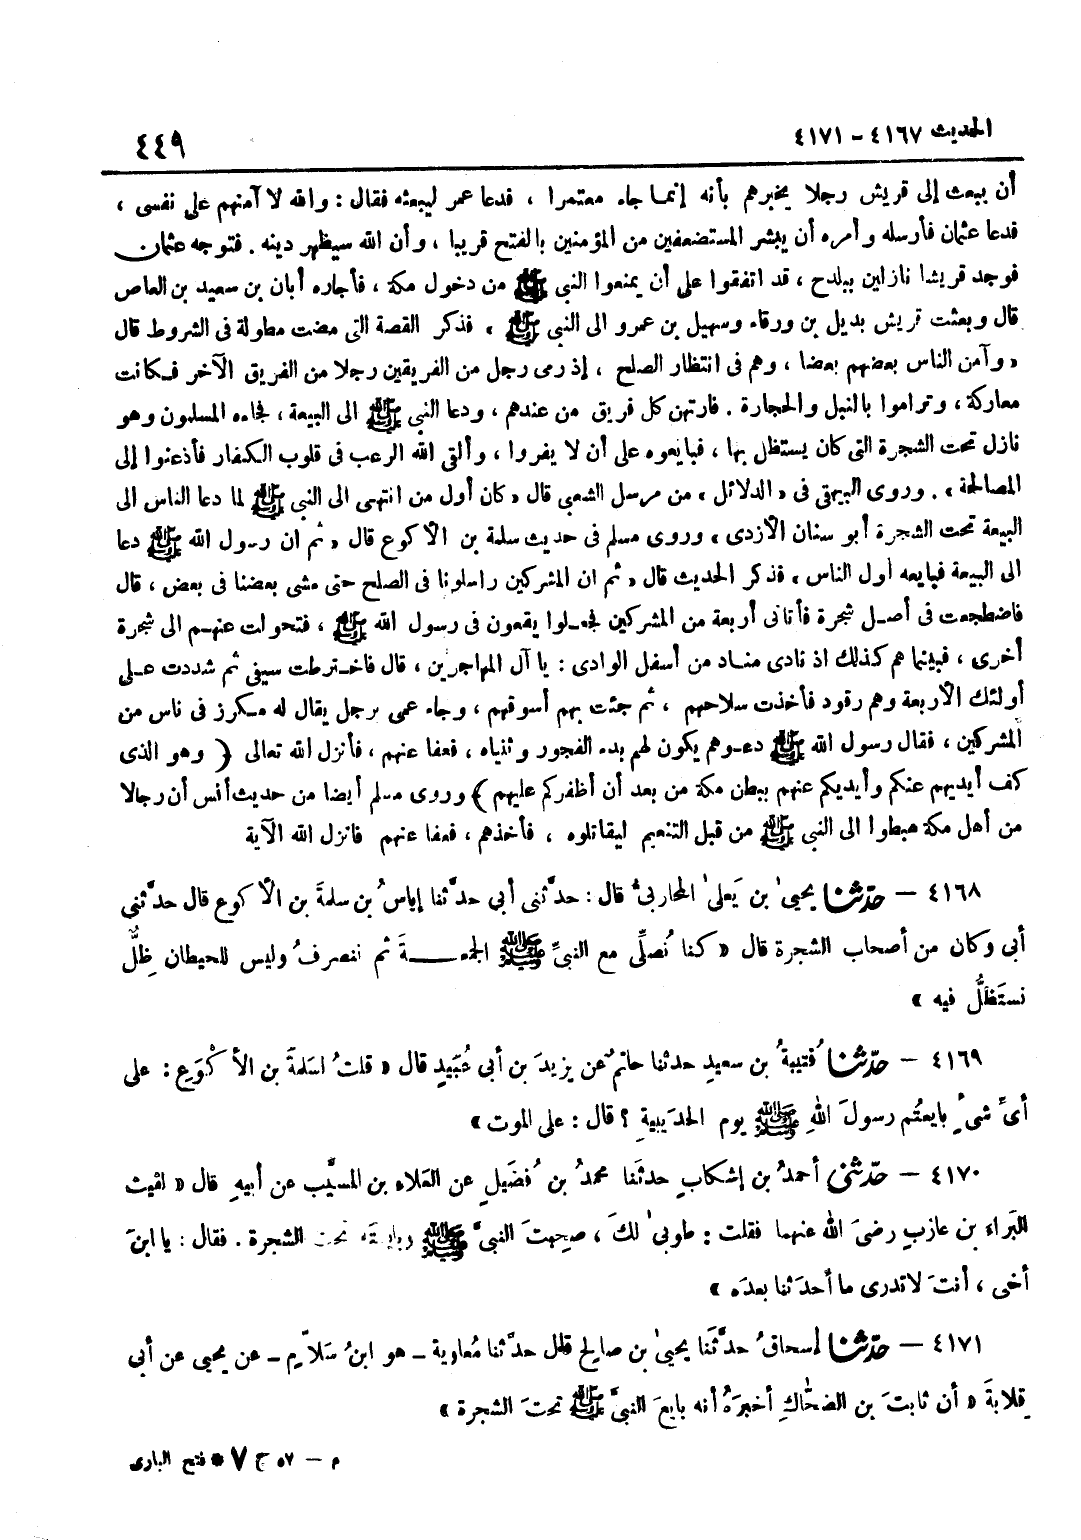 الحديث ٤١٦٧ - ٤١٧١
٤٤٩
أن يبعث إلى قريش رجلا يخبرهم بأنه إنما جاء معتمرا ، فدعا عمر ليبعثه فقال : والله لا آمنهم على نفسى ،
فدعا عثمان فأرسله وأمره أن يبشر المستضعفين من المؤمنين بالفتح قريبا ، وأن الله سيظهر دينه . فتوجه عثمان
فوجد قريشا نازلين ببلدح ، قد اتفقوا على أن يمنعوا النبي ﷺ من دخول مكة ، فأجاره أبان بن سعيد بن العاص
قال وبعثت قريش بديل بن ورقاء وسهيل بن عمرو الى النبي ﷺ » فذكر القصة التى مضت مطولة فى الشروط قال
« وآمن الناس بعضهم بعضا ، وهم فى انتظار الصلح ، إذ رمى رجل من الفريقين رجلا من الفريق الآخر فكانت
معاركة ، وتراموا بالنبل والحجارة . فارتهن كل فريق من عندهم ، ودعا النبي ﷺ الى البيعة ، فجاءه المسلمون وهو
نازل تحت الشجرة التى كان يستظل بها ، فبايعوه على أن لا يفروا ، وألقى الله الرعب فى قلوب الكفار فأذعنوا إلى
المصالحة » . وروى البيهقى فى « الدلائل » من مرسل الشعبى قال « كان أول من انتهى الى النبي ﷺ لما دعا الناس الى
البيعة تحت الشجرة أبو سنان الأزدى » وروى مسلم فى حديث سلمة بن الأكوع قال « ثم ان رسول الله ﷺ دعا
الى البيعة فبايعه أول الناس » فذكر الحديث قال « ثم ان المشركين راسلونا فى الصلح حتى مشى بعضنا فى بعض ، قال
فاضطجعت فى أصل شجرة فأتانى أربعة من المشركين فجعلوا يقعون فى رسول الله ﷺ ، فتحولت عنهم الى شجرة
أخرى ، فبينما هم كذلك اذ نادى مناد من أسفل الوادى : يا آل المهاجرين ، قال فاخترطت سيفى ثم شددت على
أولئك الأربعة وهم رقود فأخذت سلاحهم ، ثم جئت بهم أسوقهم ، وجاء عمى برجل يقال له مكرز فى ناس من
المشركين ، فقال رسول الله ﷺ دعوهم يكون لهم بدء الفجور وثنياه ، فعفا عنهم ، فأنزل الله تعالى ( وهو الذى
كف أيديهم عنكم وأيديكم عنهم ببطن مكة من بعد أن أظفركم عليهم ) وروى مسلم أيضا من حديث أنس أن رجالا
من أهل مكة هبطوا الى النبي ﷺ من قبل التنعيم ليقاتلوه ، فأخذهم ، فعفا عنهم فانزل الله الآية
٤١٦٨ - حدّثنا يحيىٰ بن يَعلىٰ المحاربىُّ قال : حدَّثنى أبى حدَّثنا إياسُ بن سلمةَ بن الأكوع قال حدَّثنى
أبى وكان من أصحاب الشجرة قال « كنا نُصلِّى مع النبىِّ ﷺ الجمعةَ ثم ننصرفُ وليس للحيطان ظِلٌّ
نستَظلُّ فيه »
٤١٦٩ - حدّثنا قُتيبةُ بن سعيدٍ حدثنا حاتمٌ عن يزيدَ بن أبى عُبَيدٍ قال « قلتُ لسَلمةَ بن الأكْوَعِ : على
أىِّ شىءٍ بايعتُم رسولَ اللهِ ﷺ يوم الحدَيبيةِ ؟ قال : على الموت »
٤١٧٠ - حدّثنى أحمدُ بن إشكابٍ حدثَنا محمدُ بن فُضَيلٍ عن العَلاء بن المسيَّب عن أبيهِ قال « لقيت
البَراء بن عازبٍ رضىَ اللهُ عنهما فقلت : طوبىٰ لكَ ، صحِبتَ النبىَّ ﷺ وبايعتَهُ تحت الشجرة . فقال : يا ابنَ
أخى ، أنتَ لاتدرى ما أحدَثنا بعدَه »
٤١٧١ - حدّثنا إسحاقُ حدَّثَنا يحيىٰ بن صالحٍ قال حدَّثنا مُعاوية - هو ابنُ سَلاّمٍ - عن يحيى عن أبى
قِلابةَ « أن ثابتَ بن الضحّاكِ أخبرَهُ أنه بايعَ النبىَّ ﷺ تحتَ الشجرة »
م - ٥٧ ج ٧ * فتح البارى